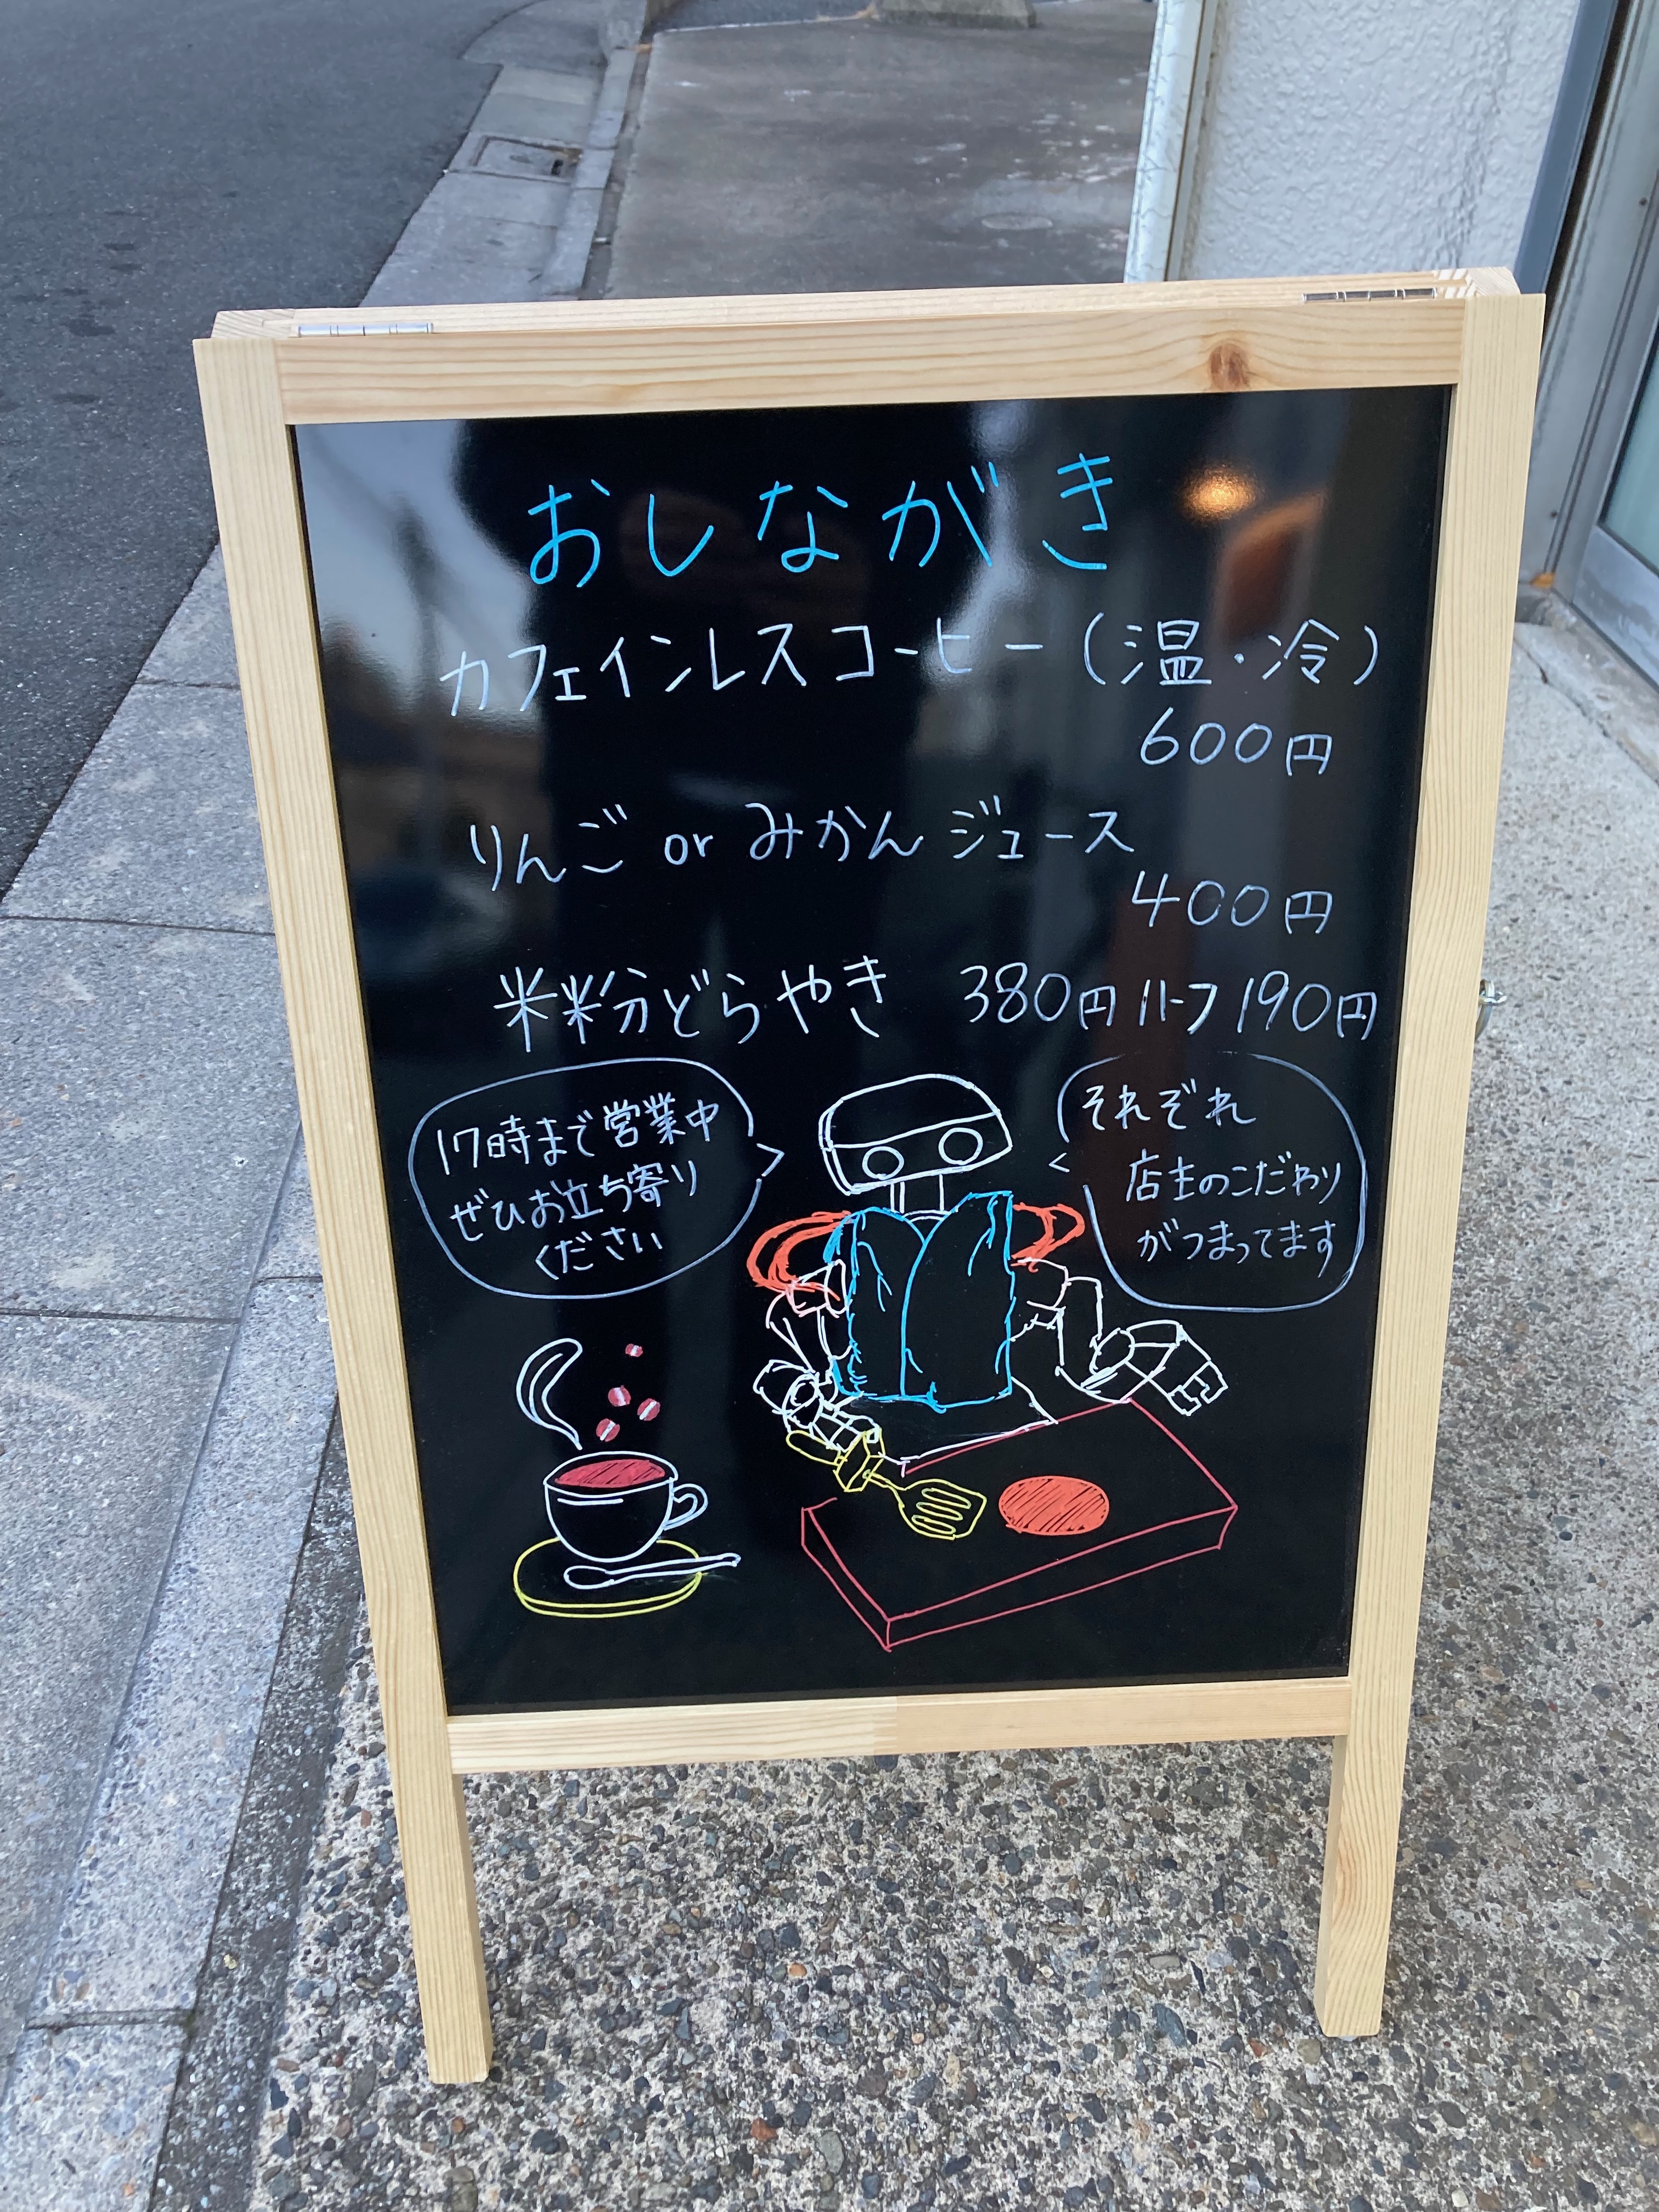 おしながき
カフェインレスコーヒー(温・冷)
600円
りんご or みかん ジュース
400円
米粉どらやき 380円 ハーフ 190円
17時まで営業中
ぜひお立ち寄り
ください
それぞれ
店主のこだわり
がつまってます